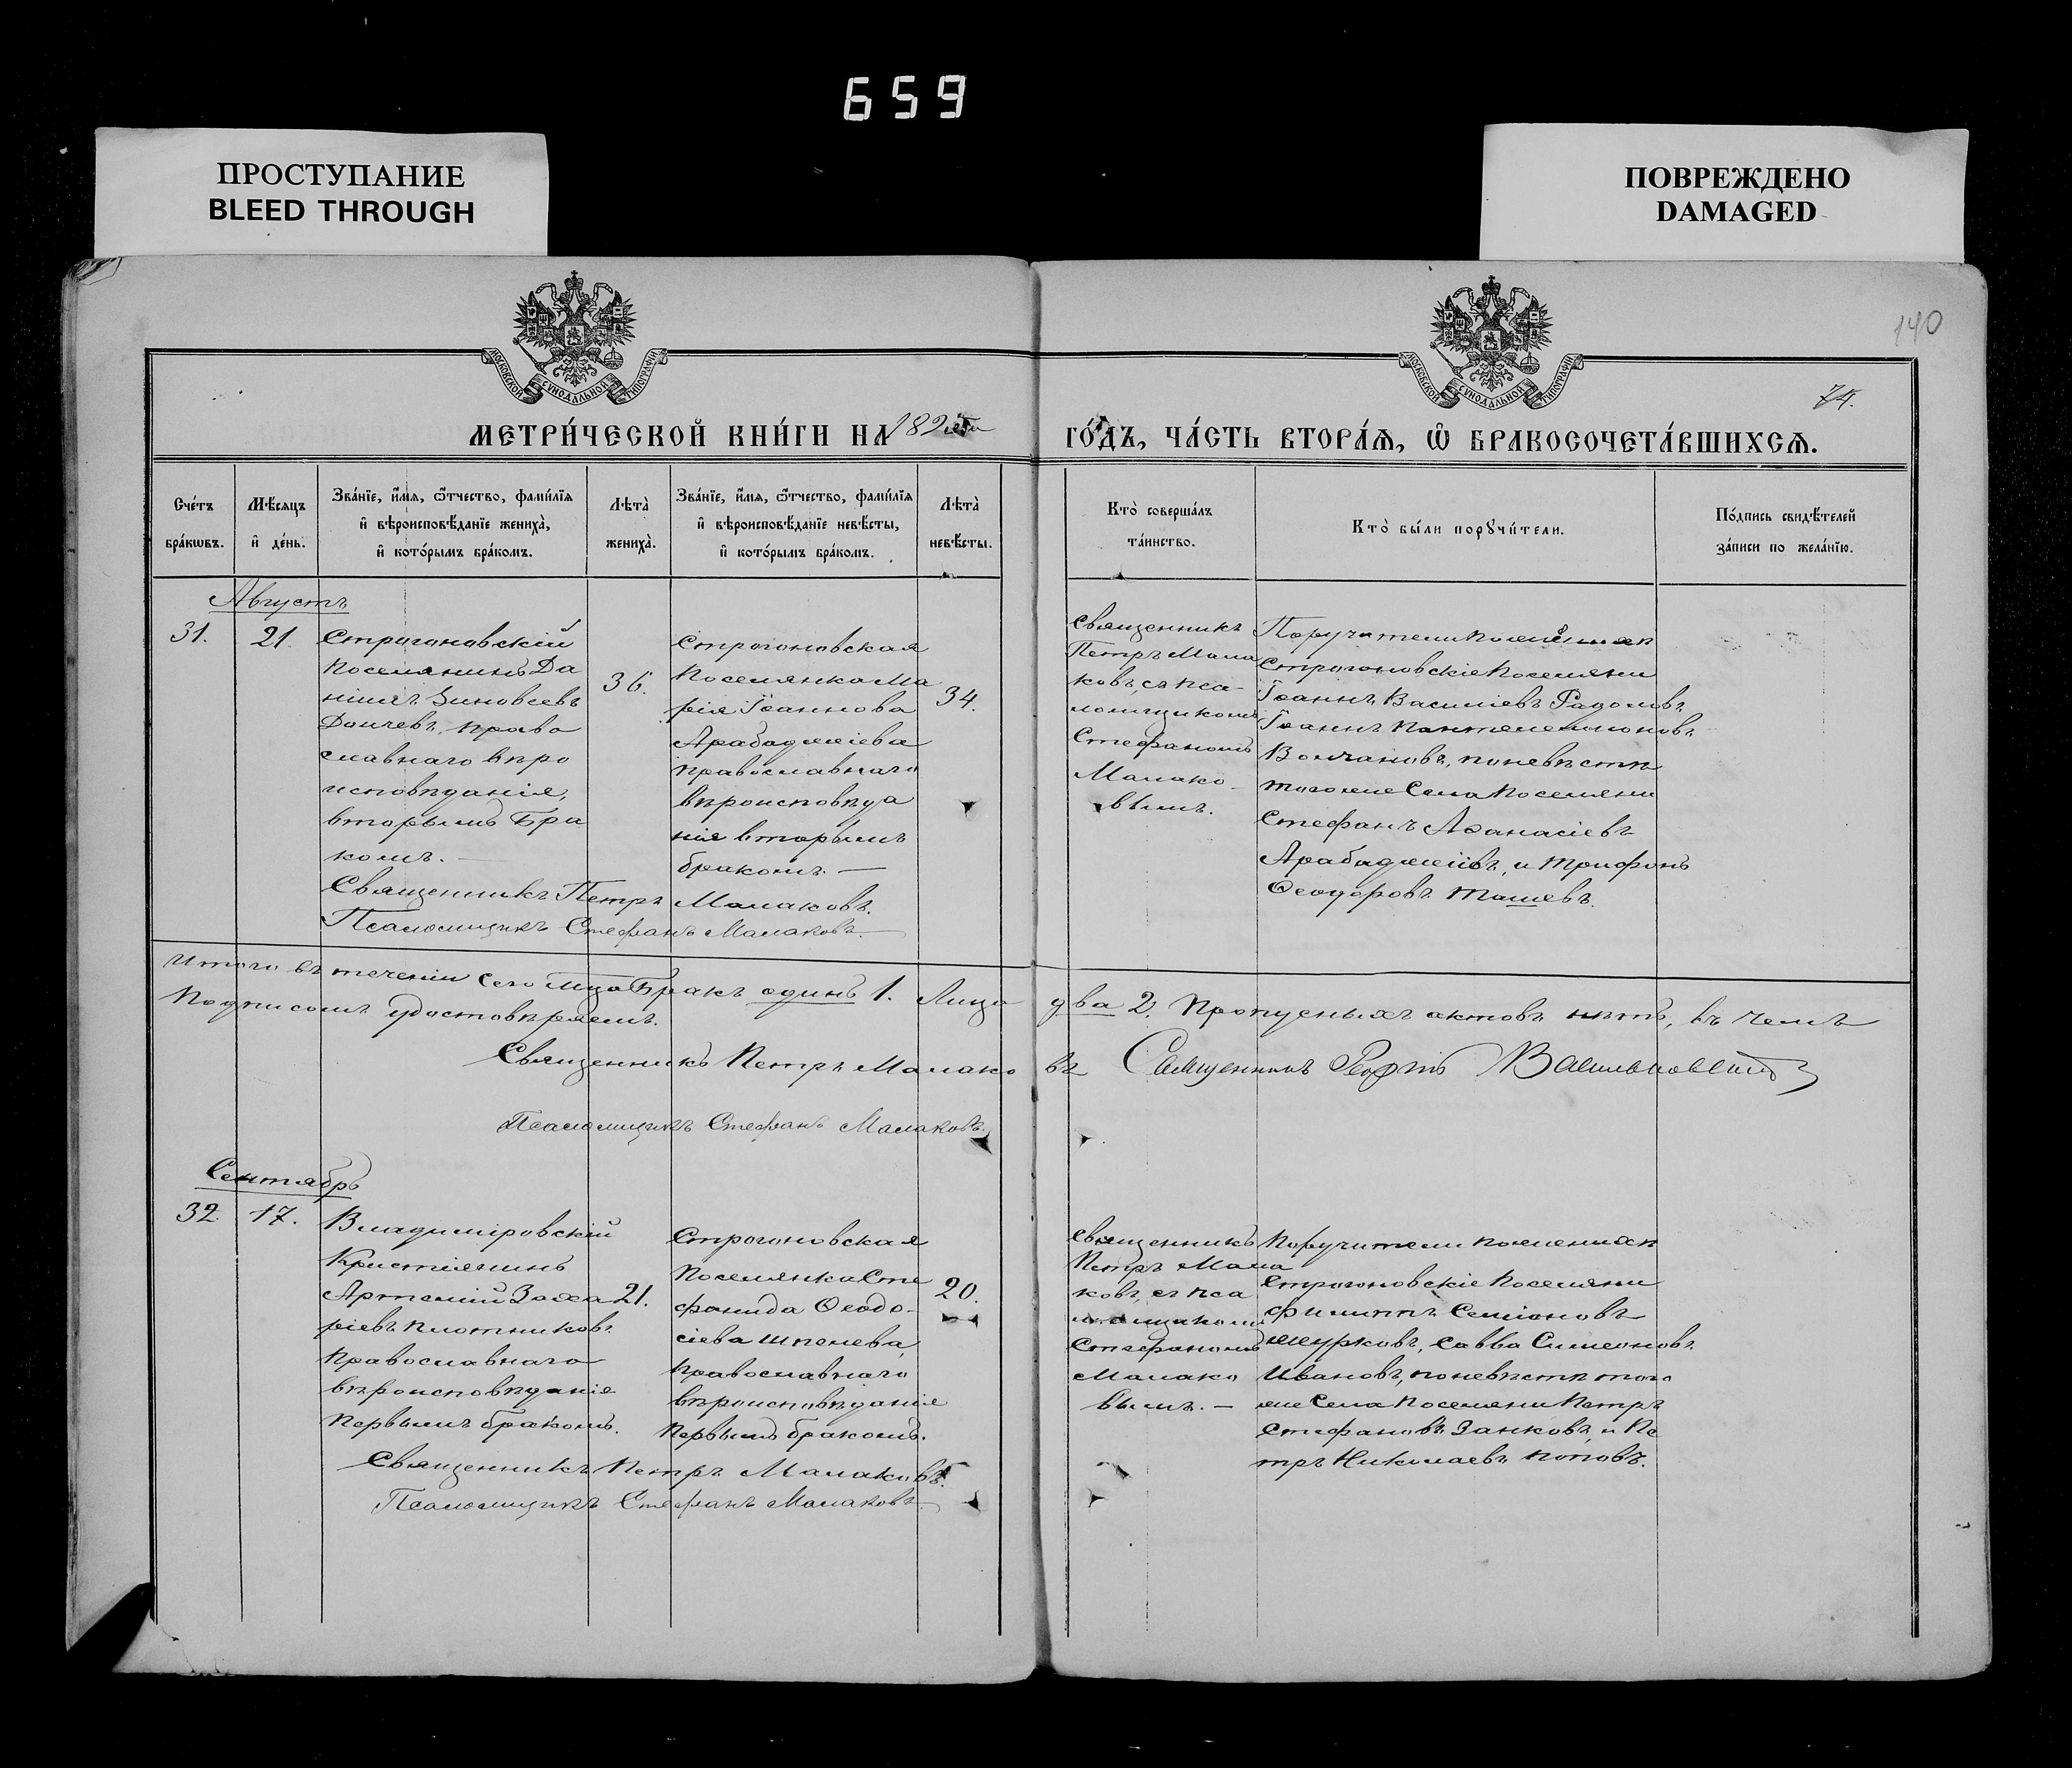 659
ПРОСТУПАНИЕ
BLEED THROUGH
ПОВРЕЖДЕНО
DAMAGED
МОСКОВСКОЙ СѴНОДАЛЬНОЙ ТИПОГРАФІИ
МОСКОВСКОЙ СѴНОДАЛЬНОЙ ТИПОГРАФІИ
140
74.
МЕТРИ́ЧЕСКОЙ КНИ́ГИ НА 189
ГО́ДЪ, ЧА́СТЬ ВТОРА́Ѧ, Ѡ҆ БРАКОСОЧЕТА́ВШИХСѦ.
Сче́тъ
бра́кѡвъ.
Мѣ́сяцъ
и҆ де́нь.
Зва́нїе, и҆́мя, ѻ҆́тчество, фами́лїя
и҆ вѣроисповѣ́данїе жениха̀,
и҆ кото́рымъ бра́комъ.
Лѣта̀
жениха̀.
Зва́нїе, и҆́мя, ѻ҆́тчество, фами́лїя
и҆ вѣроисповѣ́данїе невѣ́сты,
и҆ кото́рымъ бра́комъ.
Лѣта̀
невѣ́сты.
Кто̀ соверша́лъ
та́инство.
Кто̀ бы́ли порꙋчи́тели.
По́дпись свидѣ́телей
за́писи по жела́нїю.
Августъ
31.
21.
Строгоновскій
Поселянинъ Да
ніилъ Зиновіевъ
Дончевъ, право
славнаго вѣро
исповѣданія,
вторымъ Бра
комъ.
36.
Строгоновская
Поселянка Ма
рія Іоаннова
Арабаджіева
православнаго
вѣроисповѣда
нія вторымъ
бракомъ. —
34.
Священникъ
Петръ Мала
ковъ, съ пса-
ломщикомъ
Стефаномъ
Малако-
вымъ.
Поручители по женихѣ
Строгоновскіе Поселяни
Іоаннъ Васильевъ Радоловъ
Іоаннъ Пантелеимоновъ
Волчановъ, по невѣстѣ
того же Села Поселяни
Стефанъ Афанасіевъ
Арабаджіевъ, и Трифонъ
Ѳеодоровъ Ташевъ.
Священникъ Петръ Малаковъ.
Псаломщикъ Стефанъ Малаковъ.
Итого въ теченіи сего мца Бракъ одинъ 1. Лица два 2. Пропусныхъ актовъ нѣтъ, въ чемъ
Подписомъ удостовѣряемъ.
Священникъ Петръ Малаковъ
Священникъ Георгій Васильковскій
Псаломщикъ Стефанъ Малаковъ.
Сентябрь
32.
17.
Владиміровскій
Кристіянинъ
Артемій Заха
ріевъ Плотниковъ
Православнаго
вѣроисповѣданія
Первымъ бракомъ.
21.
Строгоновская
Поселянка Сте
фанида Ѳеодо-
сіева Шполева,
Православнаго
вѣроисповѣданія
Первымъ бракомъ.
20.
Священникъ
Петръ Мала
ковъ, съ пса
ломщикомъ
Стефаномъ
Малако
вымъ. —
Поручители по женихѣ
Строгоновскіе Поселяни
Филиппъ Семіоновъ
Журковъ, Савва Симеоновъ
Ивановъ, по невѣстѣ того
же Села Поселяни Петръ
Стефановъ Занковъ, и Пе
тръ Николаевъ Поповъ.
Священникъ Петръ Малаковъ.
Псаломщикъ Стефанъ Малаковъ